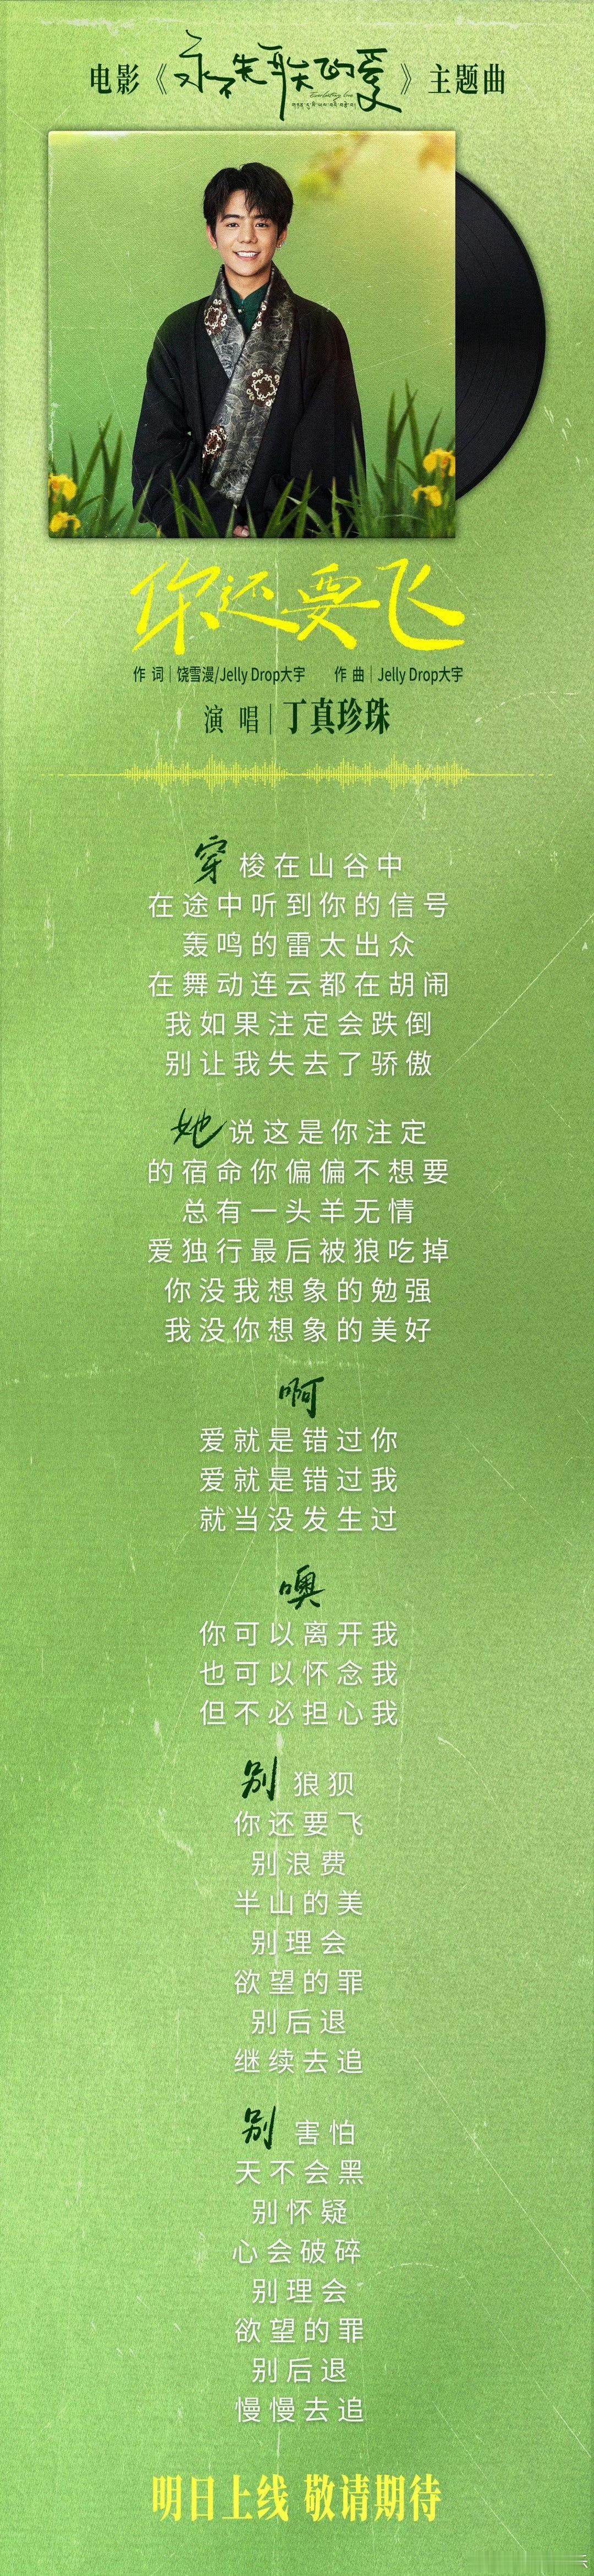 电影《永不失联的爱》主题曲
Everlasting love
你还要飞
作 词｜饶雪漫/Jelly Drop大宇 作 曲｜Jelly Drop大宇
演 唱｜丁真珍珠
穿梭在山谷中
在途中听到你的信号
轰鸣的雷太出众
在舞动连云都在胡闹
我如果注定会跌倒
别让我失去了骄傲
她说这是你注定
的宿命你偏偏不想要
总有一头羊无情
爱独行最后被狼吃掉
你没我想象的勉强
我没你想象的美好
啊
爱就是错过你
爱就是错过我
就当没发生过
噢
你可以离开我
也可以怀念我
但不必担心我
别狼狈
你还要飞
别浪费
半山的美
别理会
欲望的罪
别后退
继续去追
别害怕
天不会黑
别怀疑
心会破碎
别理会
欲望的罪
别后退
慢慢去追
明日上线 敬请期待